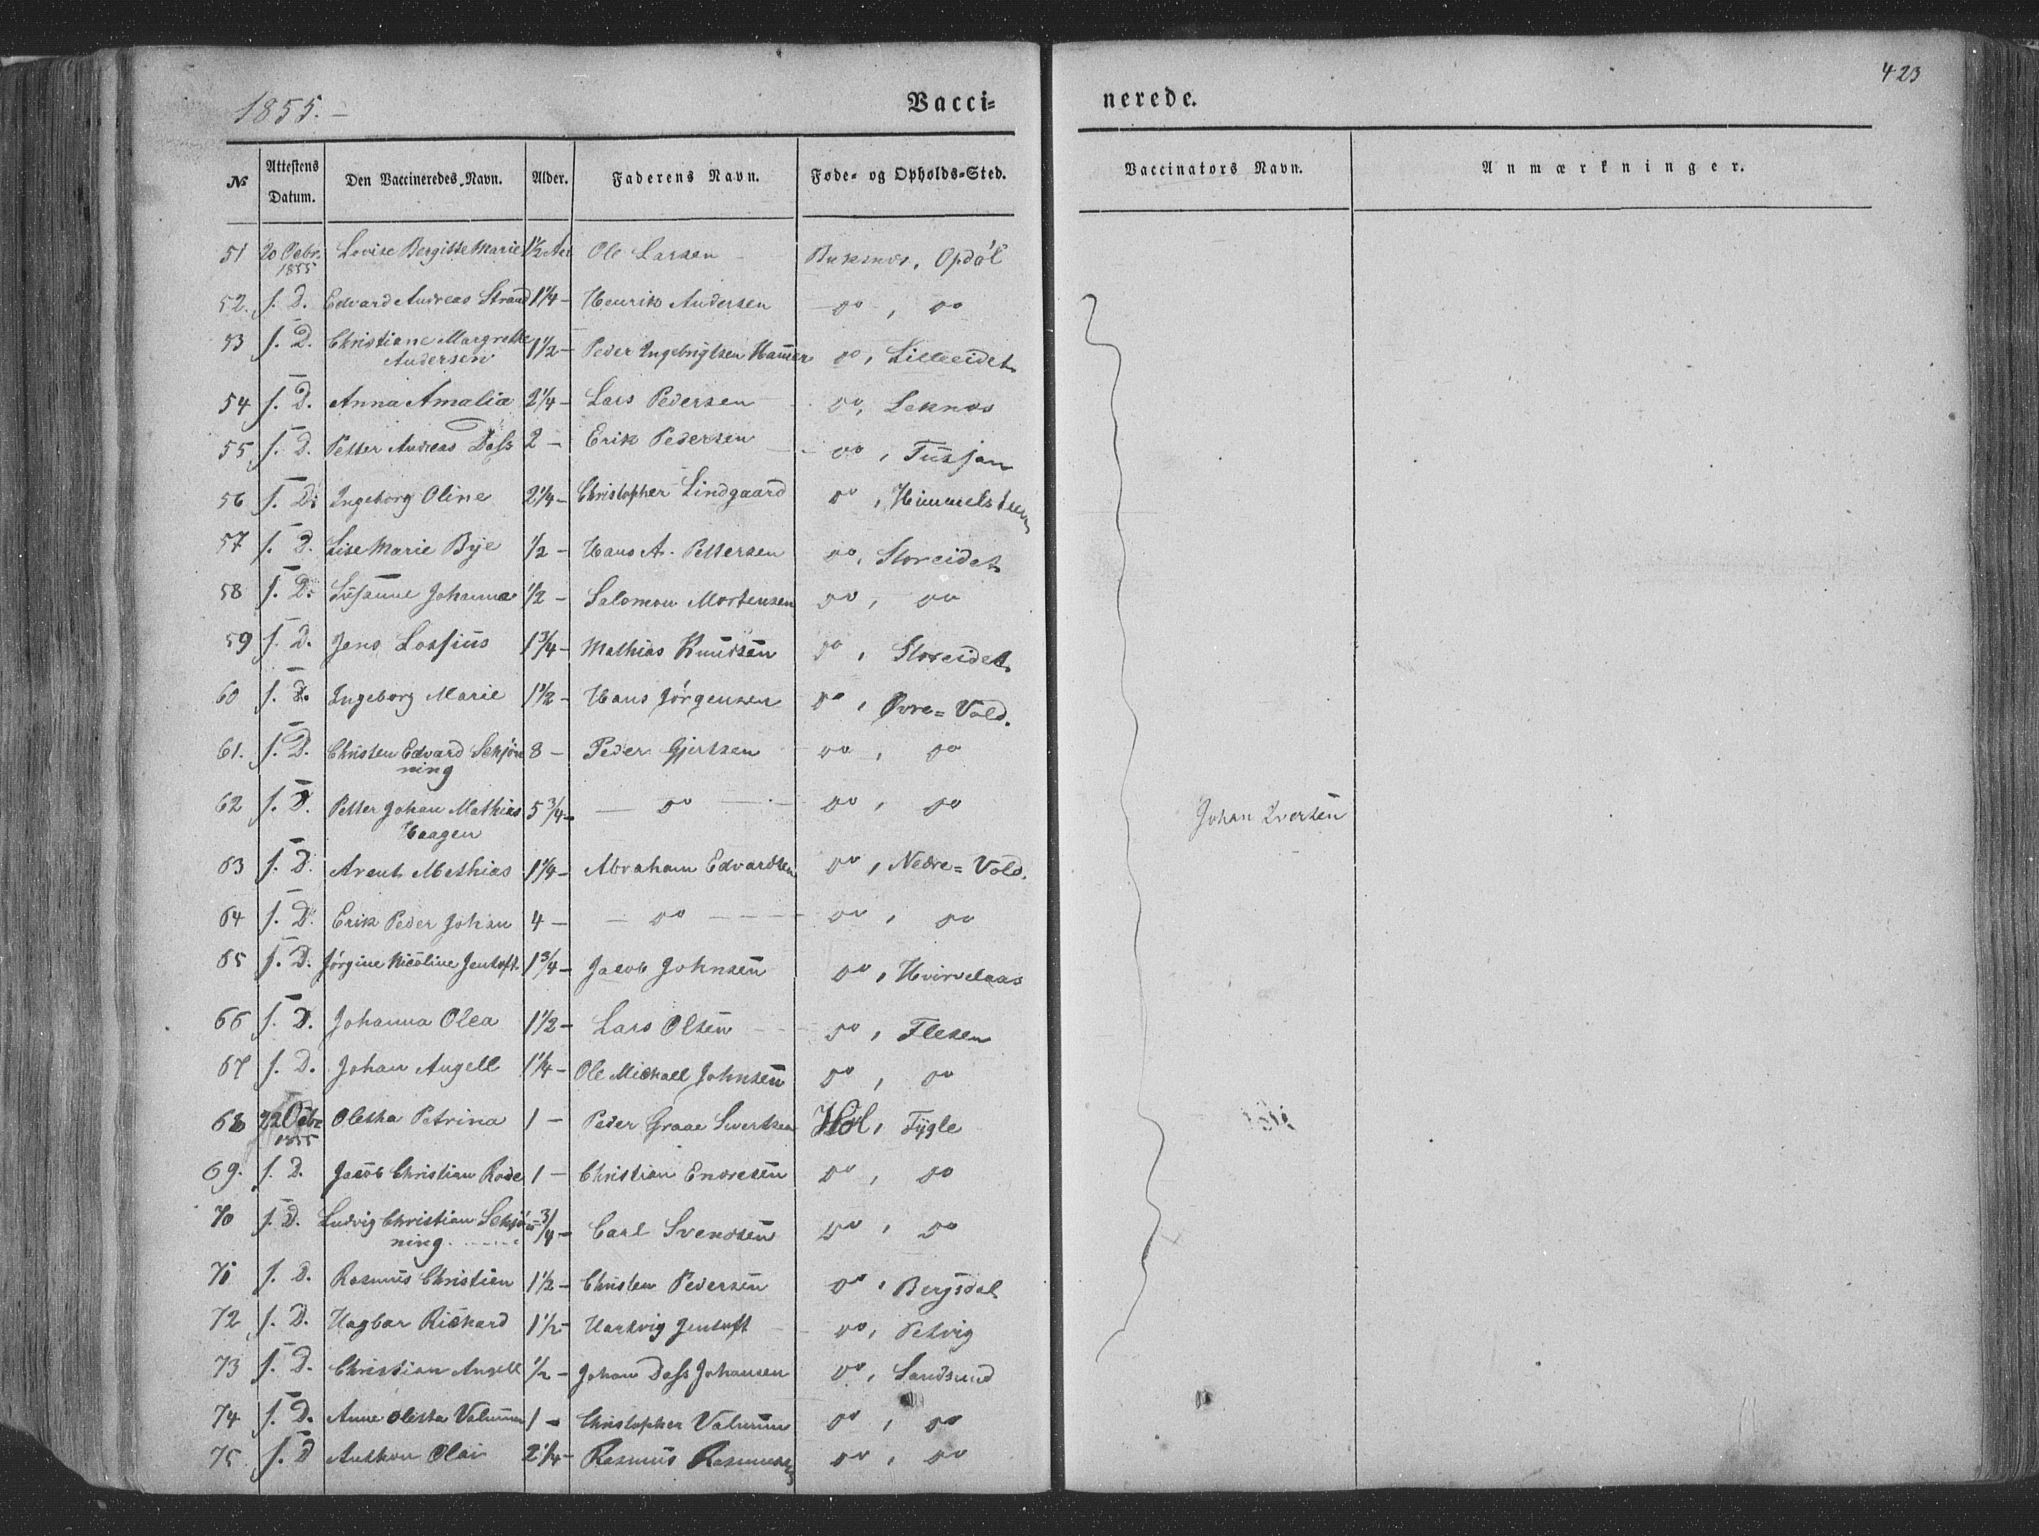 423
1855.–
Vacci=
nerede.
№
Attestens Datum.
Den Vaccineredes Navn.
Alder.
Faderens Navn.
Føde- og Opholds-Sted.
Vaccinators Navn.
Anmærkninger.
51 20 Octbr. 1855 Lovise Bergitte Marie 1½ Aar Ole Larsen Buksnes, Opdøl
52. s. D. Edvard Andreas Strand 1¼ – Henrik Andersen – do – , do
53 s. D. Christiane Margrethe Andersen 1½ – Peder Ingebrigtsen Hammer do, Lilleeidet
54 s. D. Anna Amalia 2¼ – Lars Pedersen do, Leknes
55 s. D. Petter Andreas Dass 2 – Erik Pedersen do,
56 s. D. Ingeborg Oline 2¼ – Christopher Lindgaard do,
57 s. D. Lise Marie Bye ½ – Hans A. Pettersen do, Storeidet
58 s. D. Susanne Johanna ½ – Salomon Mortensen do, do
59 s. D. Jens Lossius 1¾ – Mathias Knudsen do, Storeidet
60 s. D. Ingeborg Marie 1½ – Hans Jørgensen do, Øvre=Vold.
61. s. D. Christen Edvard Schjønning 8 – Peder Gjertsen do, do
62 s. D. Petter Johan Mathias Haagen 5¾ – – do – do, do
Johan Iversen
63 s. D. Arent Mathias 1¼ – Abraham Edvardsen do, Nedre=Vold.
64 s. D. Erik Peder Johan 4 – – do – do, do
65 s. D. Jørgine Nicoline Jentoft 1¾ – Jacob Johnsen do, Hvirvelaas
66 s. D. Johanna Olea 1½ – Lars Olsen do, Flesen
67 s. D. Johan Angell 1¼ – Ole Michael Johnsen do, do
68 22 Octbr 1855 Oletha Petrina 1 – Peder Graae Sivertsen Hol, Fygle
69. s. D. Jacob Christian Rode 1 – Christian Endresen do, do
70 s. D. Ludvig Christian Schjønning ¾ – Carl Svendsen do, do
71 s. D. Rasmus Christian 1½ – Christen Pedersen do, Bergsdal
72 s. D. Hagbar Richard 1½ – Hartvig Jentoft do, Petvig
73 s. D. Christian Angell ½ – Johan Dass Johansen do, Sandsund
74 s. D. Anne Oletha 1 – Christopher do, do
75 s. D Anthon Olai 2¼ – Rasmus Rasmussen do, do